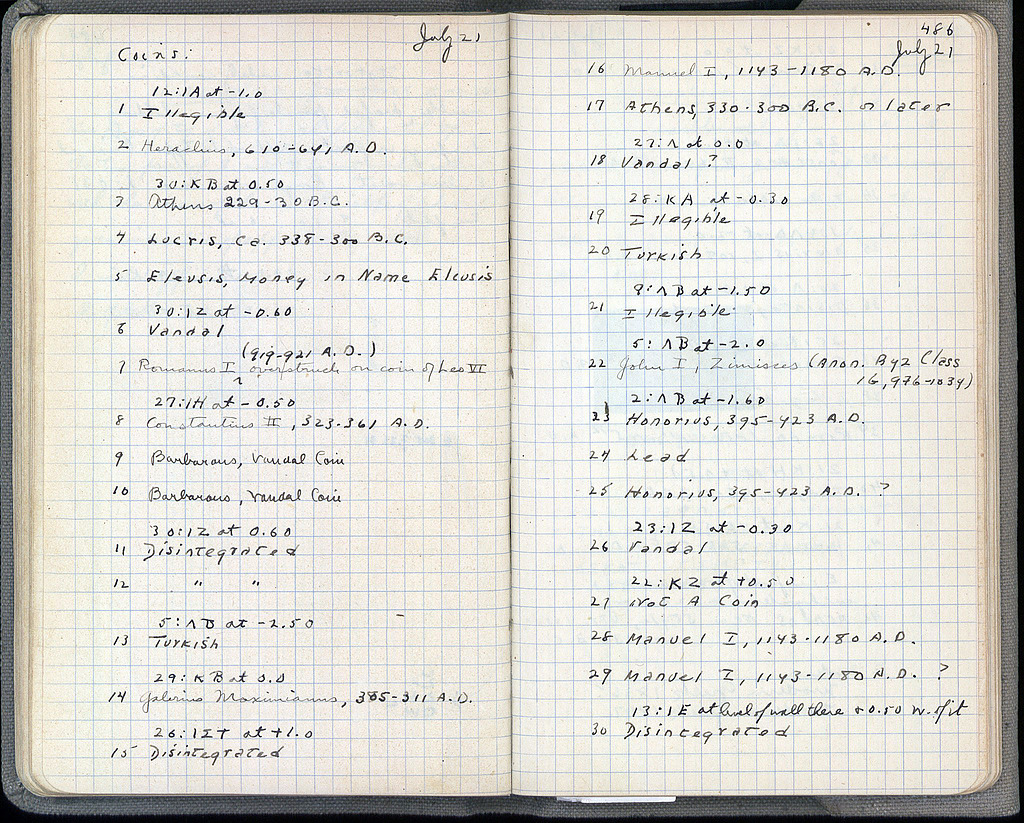 July 21
Coins:
12:1A at -1.0
1 Illegible
2 Heraclius, 610-641 A.D.
30:KB at 0.50
3 Athens 229-30 B.C.
4 Locris, ca. 338-300 B.C.
5 Eleusis, Money in Name Eleusis
30:1Z at -0.60
6 Vandal
(919-921 A.D.)
7 Romanus I ^ overstruck on coin of Leo VI
27:1H at -0.50
8 Constantius II, 323-361 A.D.
9 Barbarous, Vandal Coin
10 Barbarous, Vandal Coin
30:1Z at 0.60
11 Disintegrated
12 " "
5:ΛB at -2.50
13 Turkish
29:KB at 0.0
14 Galerius Maximianus, 305-311 A.D.
26:1ΣT at +1.0
15 Disintegrated
486
July 21
16 Manuel I, 1143-1180 A.D.
17 Athens, 330-300 B.C. or later
27:Λ at 0.0
18 Vandal ?
28:KA at -0.30
19 Illegible
20 Turkish
9:ΛB at -1.50
21 Illegible
5:ΛB at -2.0
22 John I, Zimisces (Anon. Byz Class
16, 976-1034)
2:ΛB at -1.60
23 Honorius, 395-423 A.D.
24 Lead
25 Honorius, 395-423 A.D. ?
23:1Z at -0.30
26 Vandal
22:KZ at +0.50
27 Not A Coin
28 Manuel I, 1143-1180 A.D.
29 Manuel I, 1143-1180 A.D. ?
13:1E at level of wall there & 0.50 W. of it
30 Disintegrated